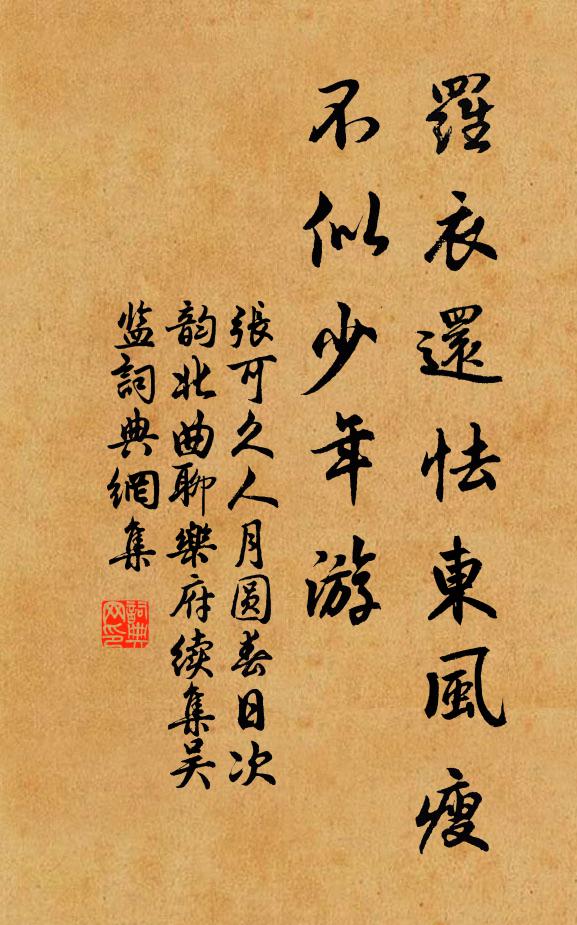 羅衣還怯東風瘦
不似少年游
張可久人月圓春日次
韵北曲聊樂府續集吴
监詞典網集
詞典网印